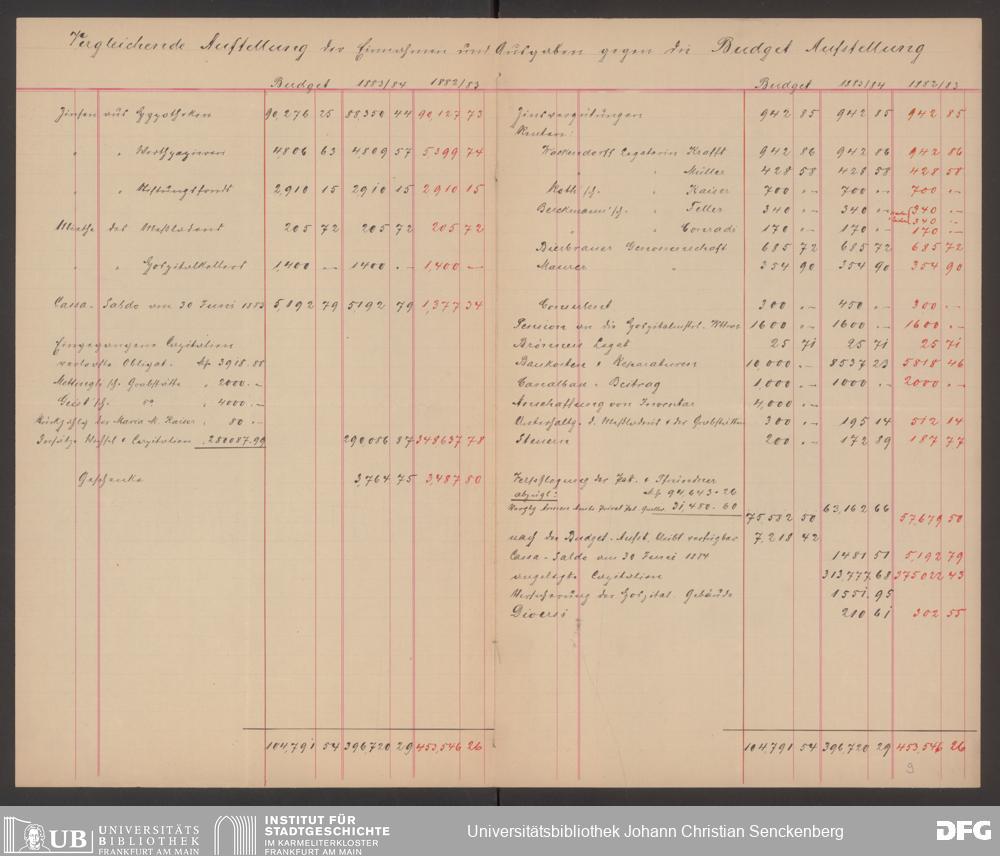 Vergleichende Aufstellung der Einnahmen und Ausgaben gegen die Budget Aufstellung
Budget 1883/84 1882/83
Zinsen aus Hypotheken 90,276 25 88350 44 90,127 73
" " Werthpapieren 4,806 63 4,809 57 5399 74
" " Stiftungsfonds 2,910 15 2910 15 2910 15
Miethe des 205 72 205 72 205 72
" " Hospitalkellers 1,400 — 1400 . — 1,400 —
Cassa-Saldo am 30 Juni 1883 5,192 79 5,192 79 1,377 34
Eingegangene Capitalien
verlooste Obligat. 3918.88
Grabstätte " 2000.—
Geist'sch. do " 4000.—
Rückzahlg der Maria M. Kaiser " 80.—
Capitalien 280087.99 290086 87 348637 78
Geschenke 3,764 75 3,487 80
104,791 54 396720 29 453,546 26
Budget 1883/84 1882/83
Zinsvergütungen 942 85 942 85 942 85
Renten:
Krafft 942 86 942 86 942 86
" Müller 428 58 428 58 428 58
Roth'sch. " Kaiser 700 . — 700 . — 700 . —
Berckmann'sch. " Feller 340 . — 340 . — 340 . —
340 . —
" Conradi 170 . — 170 . — 170 . —
Bierbrauer Genossenschaft 685 72 685 72 685 72
Maurer " 354 90 354 90 354 90
Consulent 300 . — 450 . — 300 . —
Pension an die Hospitalmstr. Wttwe 1600 . — 1600 . — 1600 . —
Brönners Legat 25 71 25 71 25 71
Baukosten & Reparaturen 10,000 . — 8537 23 5818 46
Canalbau-Beitrag 1,000 . — 1000 . — 2000 . —
Anschaffung von Inventar 4,000 . —
Unterhaltg. d. & der Grabstätten 300 . — 195 14 512 14
Steuern 200 . — 172 89 187 77
Verpflegung der Pat. & Pfründner
abzügl: 94,643.26
31,480.60 75,582 50 63,162 66 57,679 50
nach der Budget-Aufst. bleibt verfügbar 7,218 42
Cassa-Saldo am 30 Juni 1884 1481 51 5,192 79
angelegte Capitalien 313,777 68 375022 43
Versicherung der Hospital-Gebäude 1551.95
Diversi 210 61 302 55
104,791 54 396,720 29 453,546 26
9
UB UNIVERSITÄTS
BIBLIOTHEK
FRANKFURT AM MAIN
INSTITUT FÜR
STADTGESCHICHTE
IM KARMELITERKLOSTER
FRANKFURT AM MAIN
Universitätsbibliothek Johann Christian Senckenberg
DFG